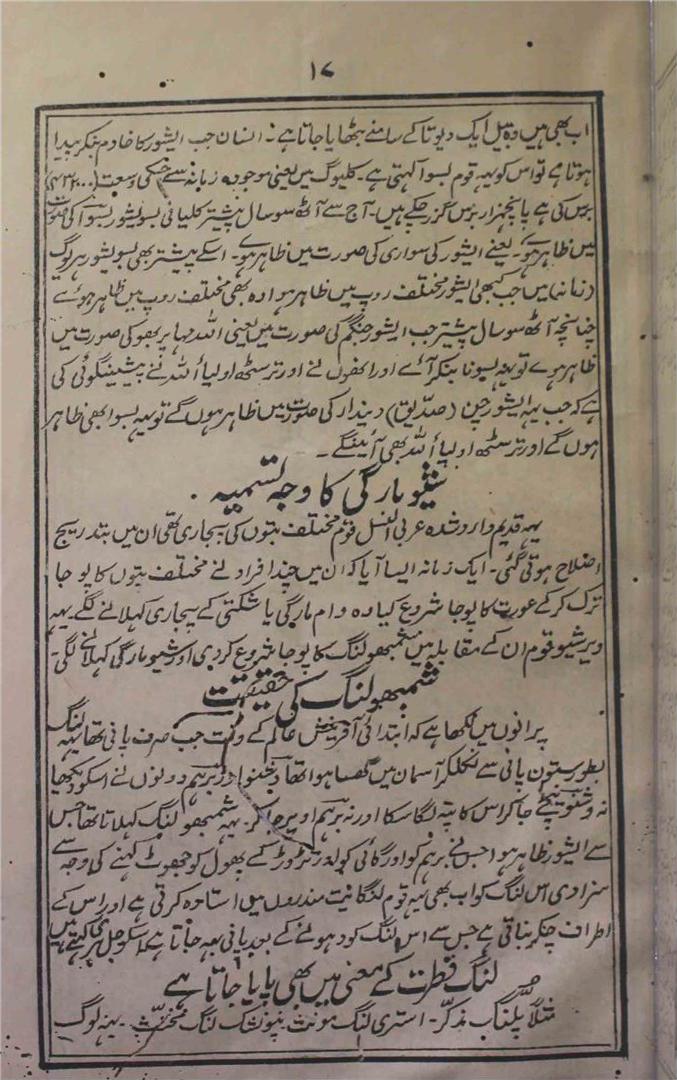 ۱۷
اب بھی ہیں وہ بیل ایک دیوتا کے سامنے بٹھایا جاتا ہے۔ انسان جب ایشور کا خادم بنکر پیدا
ہوتا ہے تو اس کو یہہ قوم بسوا کہتی ہے۔ کلیوگ میں یعنی موجودہ زمانہ سے جسکی وسعت (۴۳۲۰۰۰)
برس کی ہے پانچہزار برس گزر چکے ہیں۔ آج سے آٹھ سو سال پیشتر کلیانی بسویشور بسوا کی صورت
میں ظاہر ہوے۔ یعنے ایشور کی سواری کی صورت میں ظاہر ہوے۔ اسکے پیشتر بھی بسویشور ہر یوگ
زمانہ میں جب کبھی ایشور مختلف روپ میں ظاہر ہوا وہ بھی مختلف روپ میں ظاہر ہوئے
چنانچہ آٹھ سو سال پیشتر جب ایشور جنگم کی صورت میں یعنی اللہ مہا پربھو کی صورت میں
ظاہر ہوے تو یہہ بسونا بنکر آئے اور انھوں نے اور ترسٹھ اولیأ اللہ نے پیشینگوئی کی
ہے کہ جب یہہ ایشور چن (صدیق) دیندار کی صورت میں ظاہر ہوں گے تو یہہ بسوا بھی ظاہر
ہوں گے اور ترسٹھ اولیأ اللہ بھی آئینگے۔
شیو مارگی کا وجہ تسمیہ۔
یہہ قدیم وارد شدہ عربی النسل قوم مختلف بتوں کی پجاری تھی ان میں بتدریج
اصلاح ہوتی گئی۔ ایک زمانہ ایسا آیا کہ ان میں چند افراد نے مختلف بتوں کا پوجا
ترک کرکے عورت کا پوجا شروع کیا وہ وام مارگی یا شکتی کے پجاری کہلانے لگے۔ یہہ
ویر شیو قوم ان کے مقابلہ میں شمبھو لنگ کا پوجا شروع کردی اور شیو مارگی کہلانے لگی۔
شمبھو لنگ کی حقیقت
پرانوں میں لکھا ہے کہ ابتدائی آفرینش عالم کے وقت جب صرف پانی تھا یہہ لنگ
بطور ستون پانی سے نکلکر آسمان میں گھسا ہوا تھا وشنو اور برہم دونوں نے اسکو دیکھا
نہ وشنو نیچے جا کر اس کا پتہ لگا سکا اور نہ برہم اوپر جا کر۔ یہہ شمبھو لنگ کہلاتا تھا جس
سے ایشور ظاہر ہوا جس نے برہم کو اور گائی کو اور کے پھول کو جھوٹ کہنے کی وجہ سے
سزا دی اس لنگ کو اب بھی یہہ قوم لنگایت مندروں میں استادہ کرتی ہے اور اس کے
اطراف چکر بناتی ہے جس سے اس لنگ کو دہونے کے بعد پانی بہہ جاتا ہے اسکو جل ہری کہتے ہیں
لنگ فطرت کے معنی میں بھی پایا جاتا ہے
مثلاً پلنگ مذکر۔ استری لنگ مونث۔ نپونشک لنگ مخنث۔ یہہ لوگ